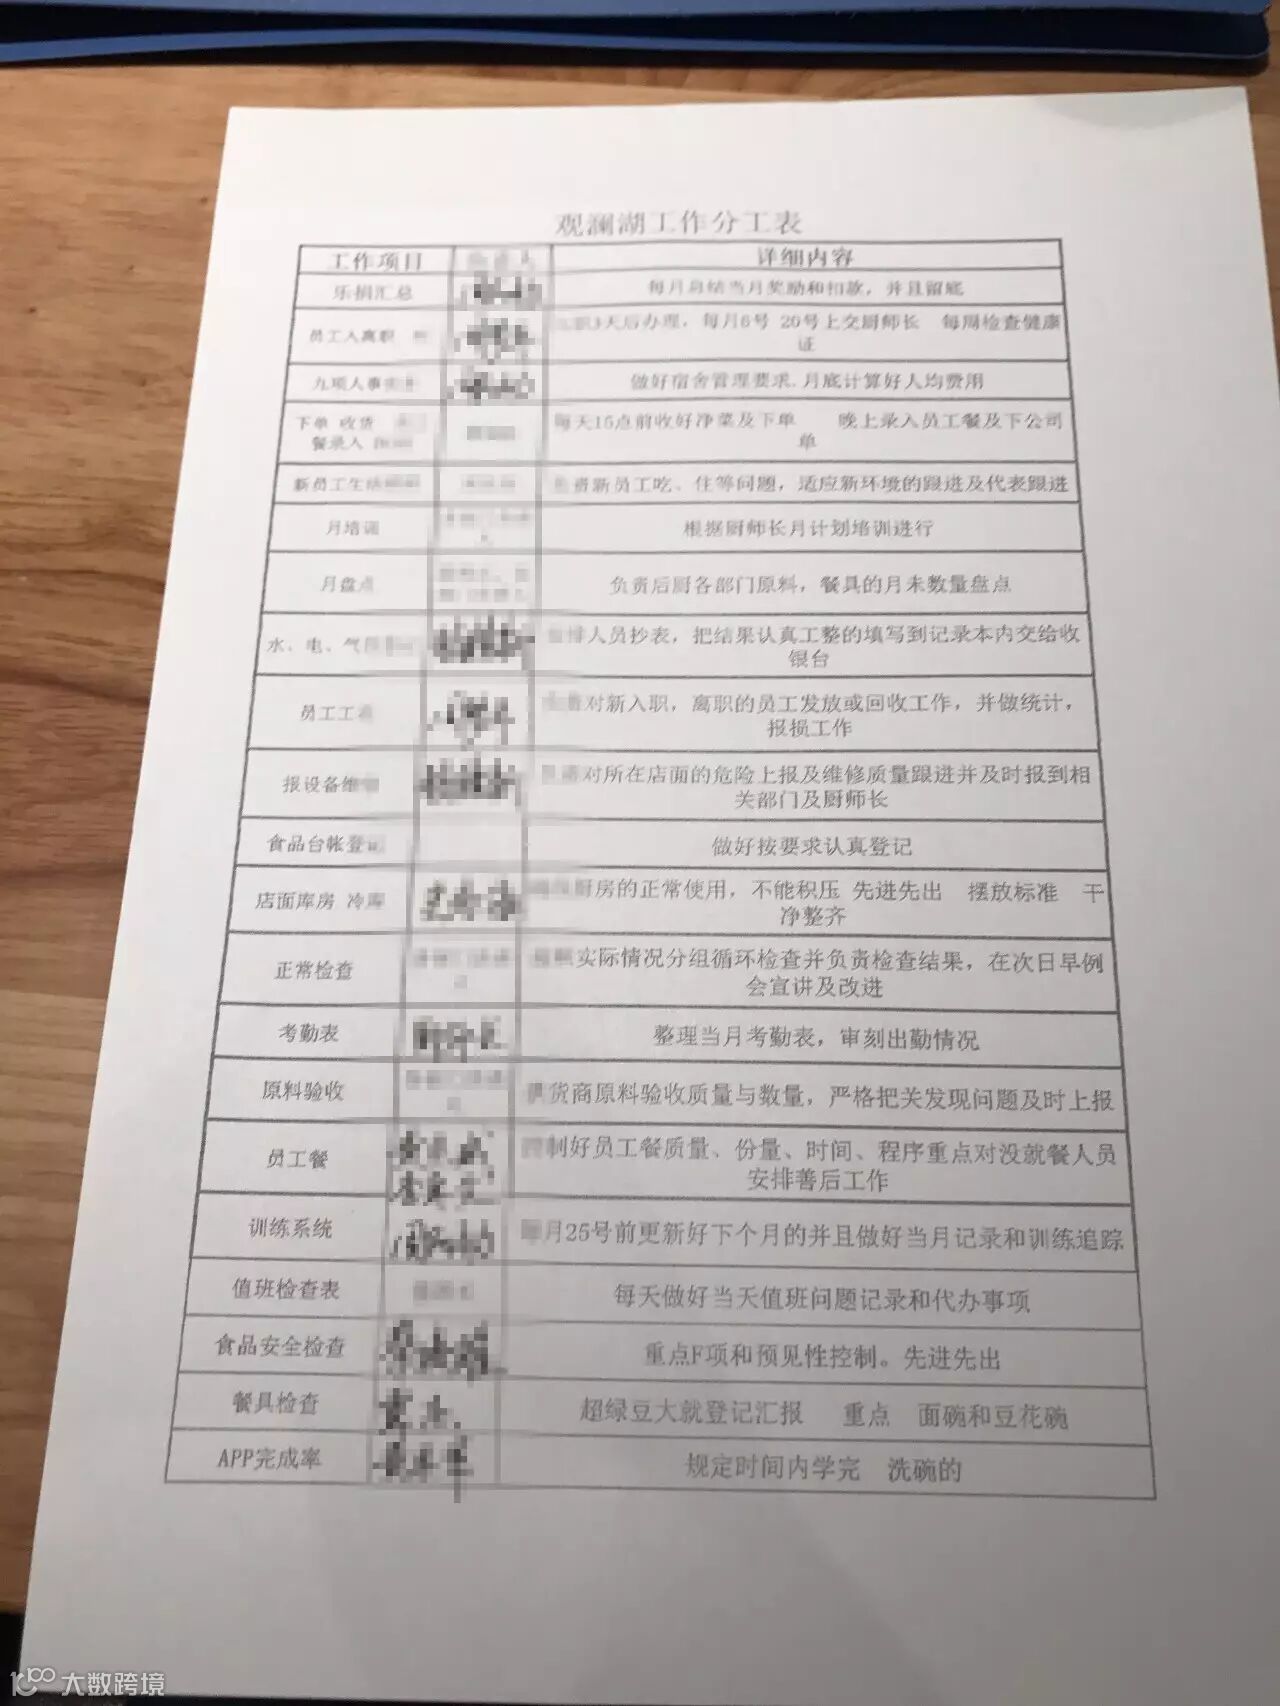 观澜湖工作分工表
工作项目 详细内容
乐捐汇总 每月总结当月奖励和扣款，并且留底
员工入离职 天后办理，每月6号 20号上交厨师长 每周检查健康
证
九项人事 做好宿舍管理要求.月底计算好人均费用
下单 收货 每天15点前收好净菜及下单 晚上录入员工餐及下公司
餐录入 单
新员工生 责新员工吃、住等问题，适应新环境的跟进及代表跟进
月培训 根据厨师长月计划培训进行
月盘点 负责后厨各部门原料，餐具的月末数量盘点
水、电、气 排人员抄表，把结果认真工整的填写到记录本内交给收
银台
员工工 对新入职，离职的员工发放或回收工作，并做统计，
报损工作
报设备维 对所在店面的危险上报及维修质量跟进并及时报到相
关部门及厨师长
食品台帐登记 做好按要求认真登记
店面库房 冷库 厨房的正常使用，不能积压 先进先出 摆放标准 干
净整齐
正常检查 实际情况分组循环检查并负责检查结果，在次日早例
会宣讲及改进
考勤表 整理当月考勤表，审刻出勤情况
原料验收 供货商原料验收质量与数量，严格把关发现问题及时上报
员工餐 制好员工餐质量、份量、时间、程序重点对没就餐人员
安排善后工作
训练系统 月25号前更新好下个月的并且做好当月记录和训练追踪
值班检查表 每天做好当天值班问题记录和代办事项
食品安全检查 重点F项和预见性控制。先进先出
餐具检查 超绿豆大就登记汇报 重点 面碗和豆花碗
APP完成率 规定时间内学完 洗碗的
大数跨境